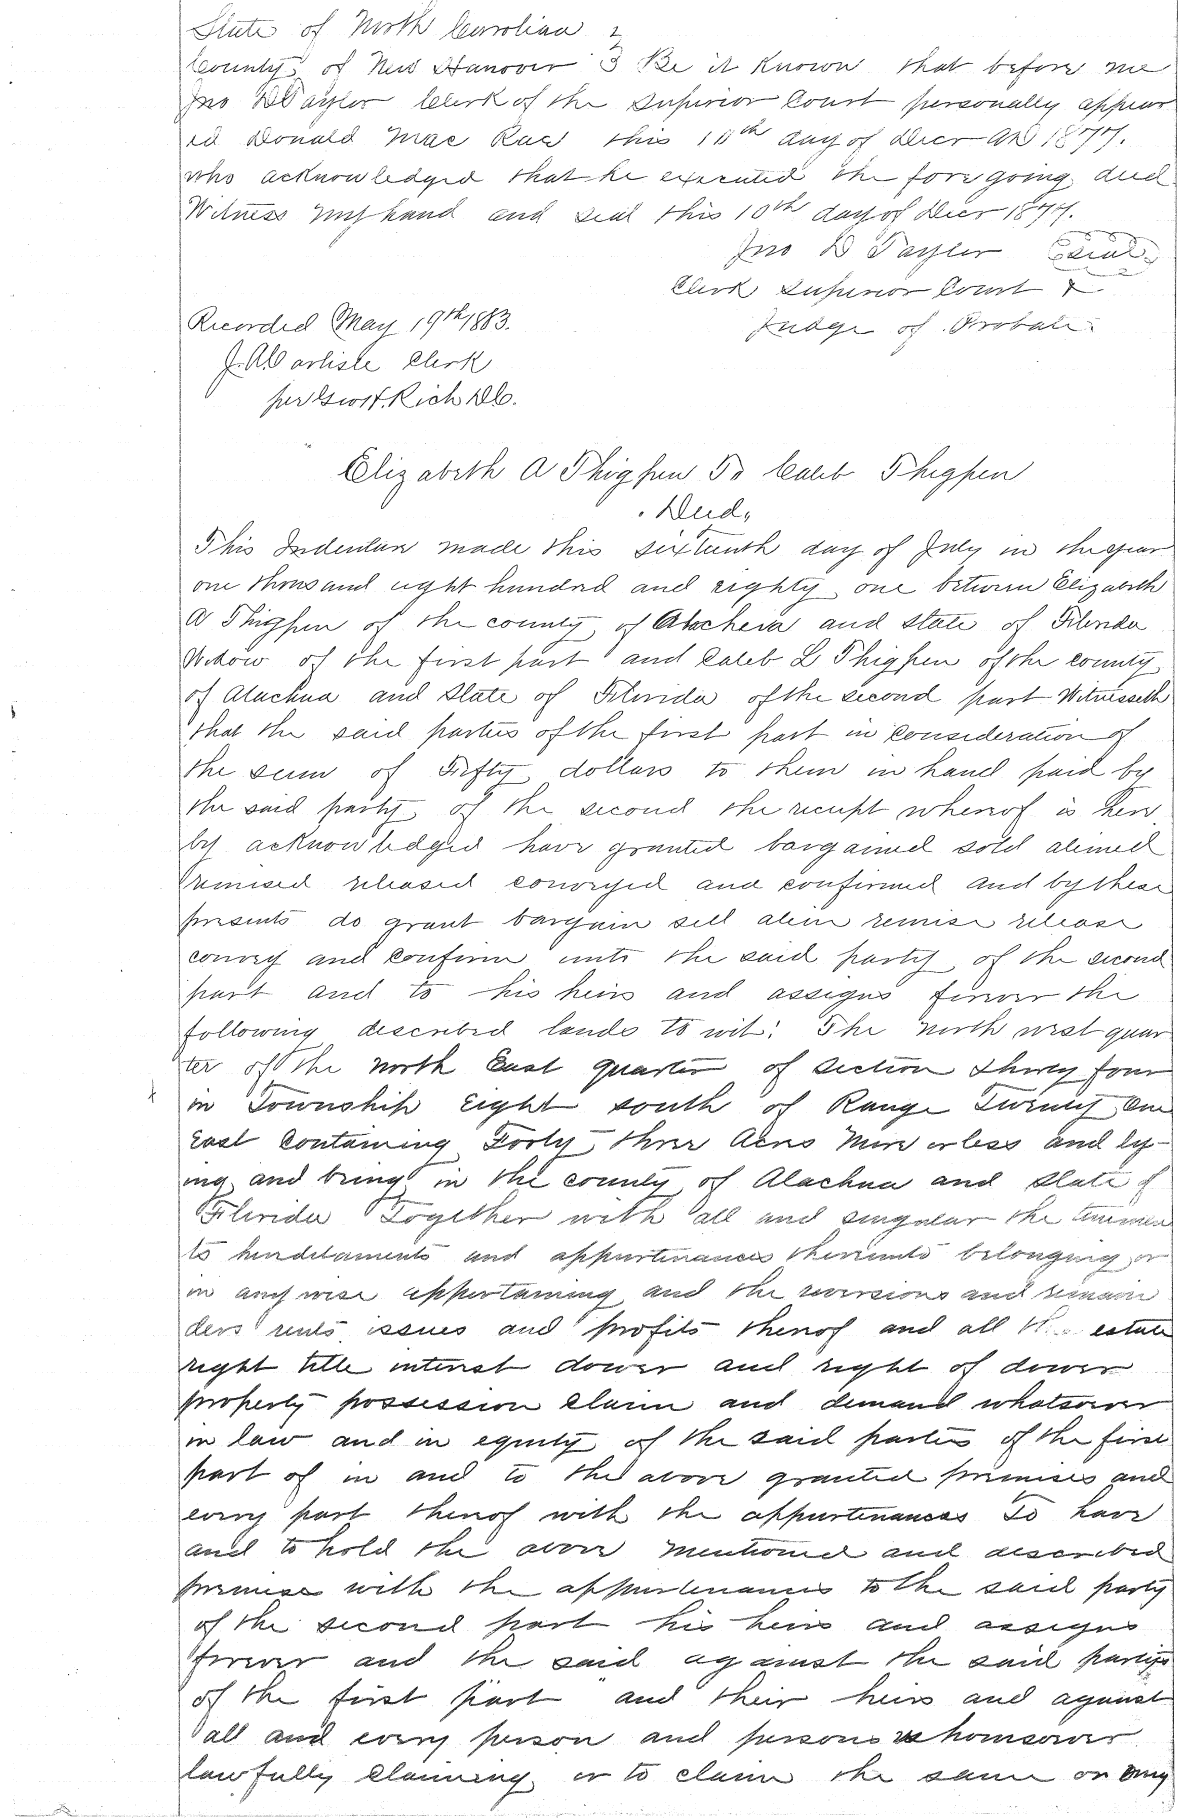 State of North Carolina
County of New Hanover } Be it Known that before me
Jno D Taylor Clerk of the Superior Court personally appear
ed Donald Mac Rae this day of Decr AD 1877.
who acknowledged that he executed the fore going deed
Witness my hand and seal this 10th day of Decr 1877.
Jno D Taylor (seal)
Clerk Superior Court &
Judge of Probate.
Recorded May 19th 1883.
J. A. Carlisle Clerk
per Geo H. Rich D.C.
Elizabeth A Thigpen To Caleb Thigpen
Deed,
This Indenture made this sixteenth day of July in the year
one thousand eight hundred and eighty one between Elizabeth
A Thigpen of the county of Alachua and state of Florida
Widow of the first part and Caleb L Thigpen of the county
of Alachua and State of Florida of the second part Witnesseth
that the said parties of the first part in consideration of
the sum of Fifty dollars to them in hand paid by
the said party of the second the receipt whereof is here
by acknowledged have granted bargained sold aliened
remised released conveyed and confirmed and by these
presents do grant bargain sell alien remise release
convey and confirm unto the said party of the second
part and to his heirs and assigns forever the
following described lands to wit: The north west quar
ter of the north East quarter of section thirty four
in Township Eight south of Range Twenty One
East Containing Forty three Acres More or less and ly-
ing and being in the county of Alachua and State of
Florida Together with all and singular the tenemen
ts hereditaments and appurtenances thereunto belonging or
in any wise appertaining and the reversions and remain
ders rents issues and profits thereof and all the estate
right title interest dower and right of dower
property possession claim and demand whatsoever
in law and in equity of the said parties of the first
part of in and to the above granted premises and
every part thereof with the appurtenances To have
and to hold the above mentioned and described
premises with the appurtenances to the said party
of the second part his heirs and assigns
forever and the said against the said parties
of the first part and their heirs and against
all and every person and persons whomsoever
lawfully claiming or to claim the same or any